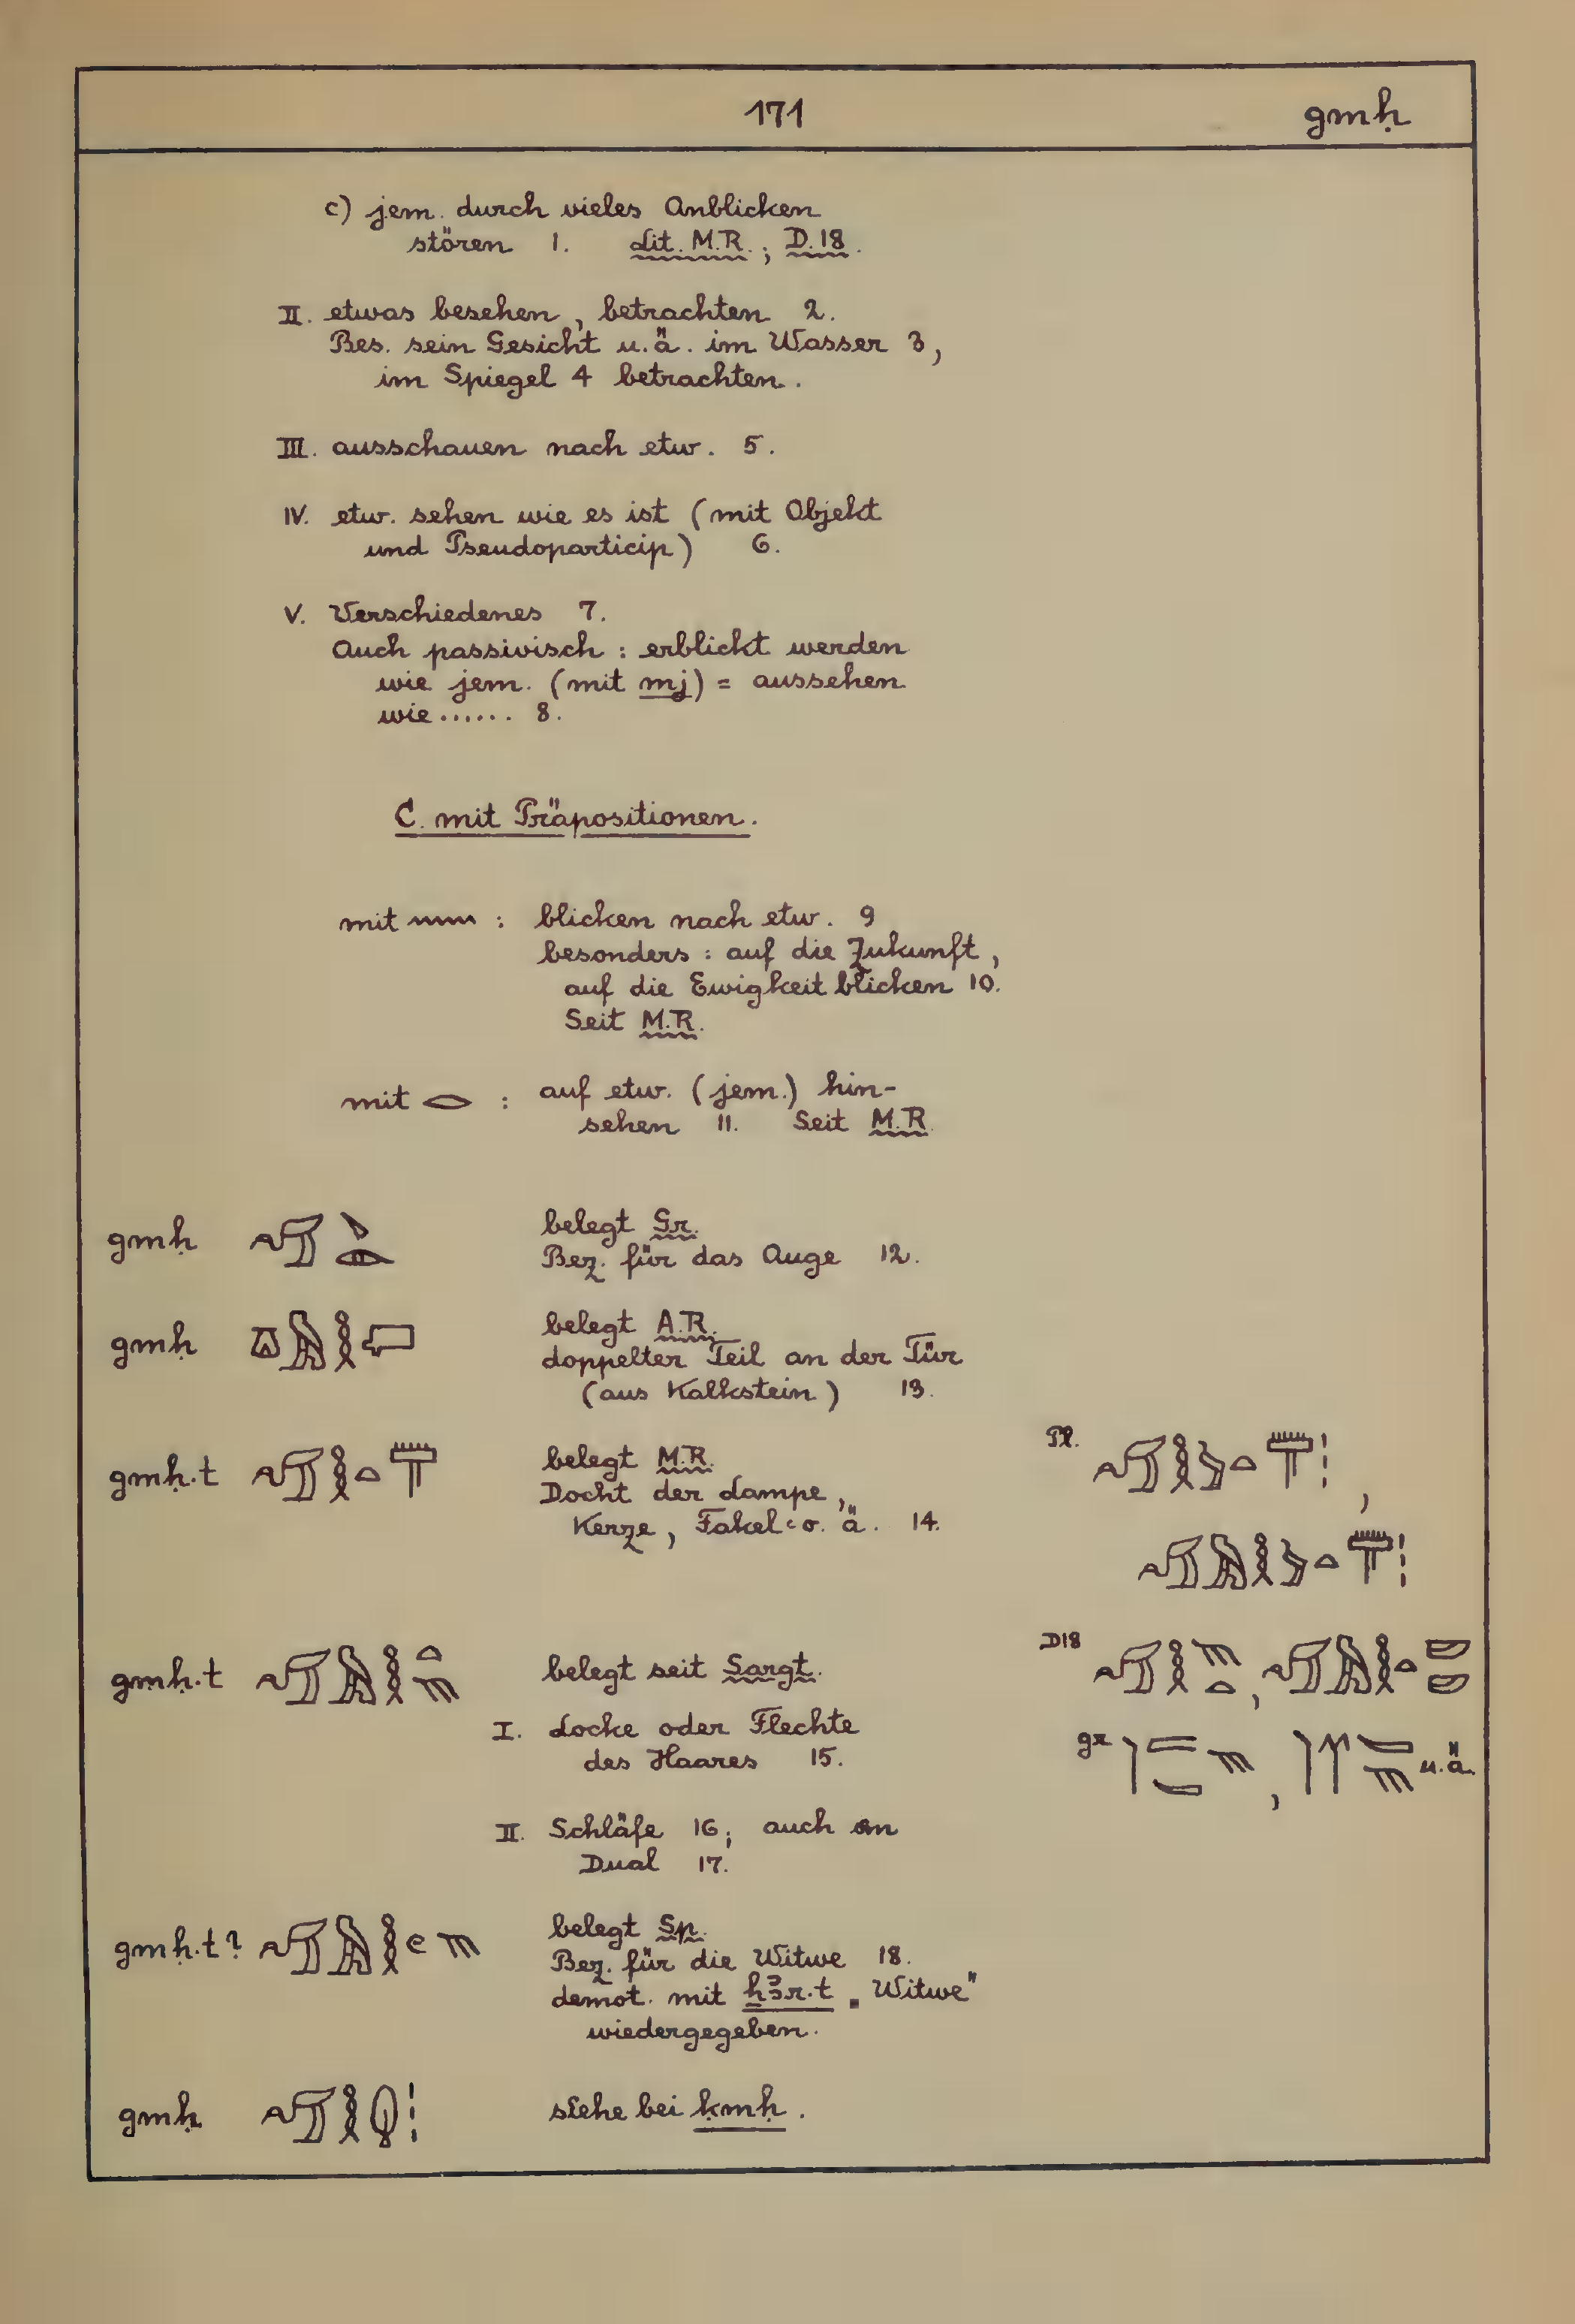 171 gmḥ
c) jem. durch vieles Anblicken
stören 1. Lit. M.R.; D.18.
II. etwas besehen, betrachten 2.
Bes. sein Gesicht u.ä. im Wasser 3,
im Spiegel 4 betrachten.
III. ausschauen nach etw. 5.
IV. etw. sehen wie es ist (mit Objekt
und Pseudoparticip) 6.
V. Verschiedenes 7.
Auch passivisch: erblickt werden
wie jem. (mit mj) = aussehen
wie ...... 8.
C. mit Präpositionen.
mit 𓈖 : blicken nach etw. 9
besonders: auf die Zukunft,
auf die Ewigkeit blicken 10.
Seit M.R.
mit 𓂋 : auf etw. (jem.) hin-
sehen 11. Seit M.R.
gmḥ belegt Gr.
Bez. für das Auge 12.
gmḥ belegt A.R.
doppelter Teil an der Tür
(aus Kalkstein) 13.
gmḥ.t belegt M.R. Pl.
Docht der Lampe,
Kerze, Fakel o. ä. 14.
gmḥ.t belegt seit Sargt. D18
I. Locke oder Flechte
des Haares 15. gr u.ä.
II. Schläfe 16; auch im
Dual 17.
gmḥ.t? belegt Sp.
Bez. für die Witwe 18.
demot. mit ẖꜣr.t „Witwe"
wiedergegeben.
gmḥ siehe bei ḳmḥ.